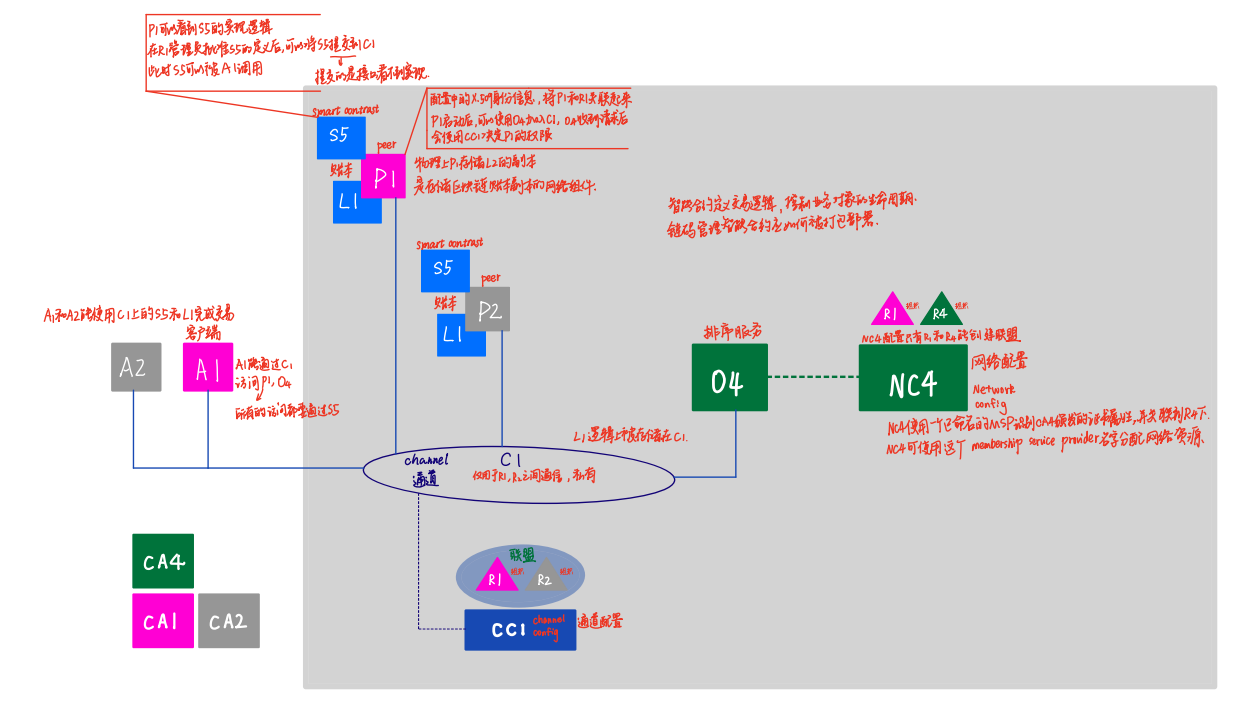 P1可以看到S5的实现逻辑
在R1管理员批准S5的定义后,可以将S5提交到C1
此时S5可以被A1调用
提交的是接口看不到实现.
smart contrast
S5
peer
P1
账本
L1
配置中的X.509身份信息,将P1和R1关联起来
P1启动后,可以使用O4加入C1, O4收到请求后
会使用CC1决定P1的权限
物理上P1存储L2的副本
是存储区块链账本副本的网络组件.
智能合约定义交易逻辑,控制业务对象的生命周期.
链码管理智能合约应如何被打包部署.
smart contrast
S5
peer
P2
账本
L1
A1和A2能使用C1上的S5和L1完成交易
客户端
A2
A1
A1能通过C1
访问P1, O4
所有的访问都要通过S5
排序服务
O4
R1
组织
R4
组织
NC4配置只有R1和R4能创建联盟
NC4
网络配置
Network
config
NC4使用一个已命名的MSP识别CA4颁发的证书属性,并关联到R4下.
NC4可使用这个membership service provider名字分配网络资源.
L1逻辑上被存储在C1.
channel
通道
C1
仅用于R1, R2之间通信,私有
CA4
CA1
CA2
联盟
R1
组织
R2
组织
CC1
channel
config
通道配置